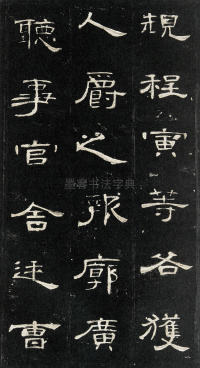 規程寅等各獲
人爵之報廓廣
聽事官舍廷曹
书法字典